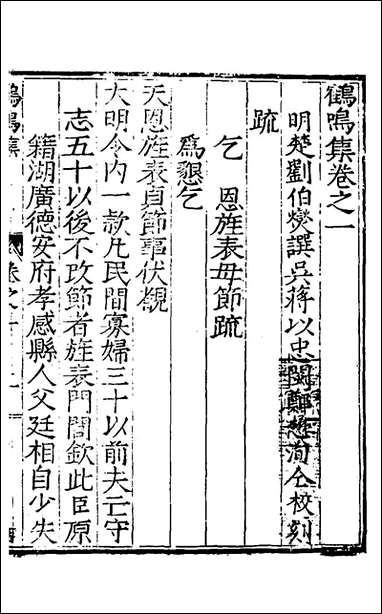 鶴鳴集卷之一
明楚劉伯燮譔吳蔣以忠閩鄭懋洵仝校刻
疏
乞　恩旌表母節疏
爲懇乞
天恩旌表貞節事伏覩
大明令內一款凡民間寡婦三十以前夫亡守
志五十以後不改節者旌表門閭欽此臣原
籍湖廣德安府孝感縣人父廷相自少失
鶴鳴集
卷之一
一